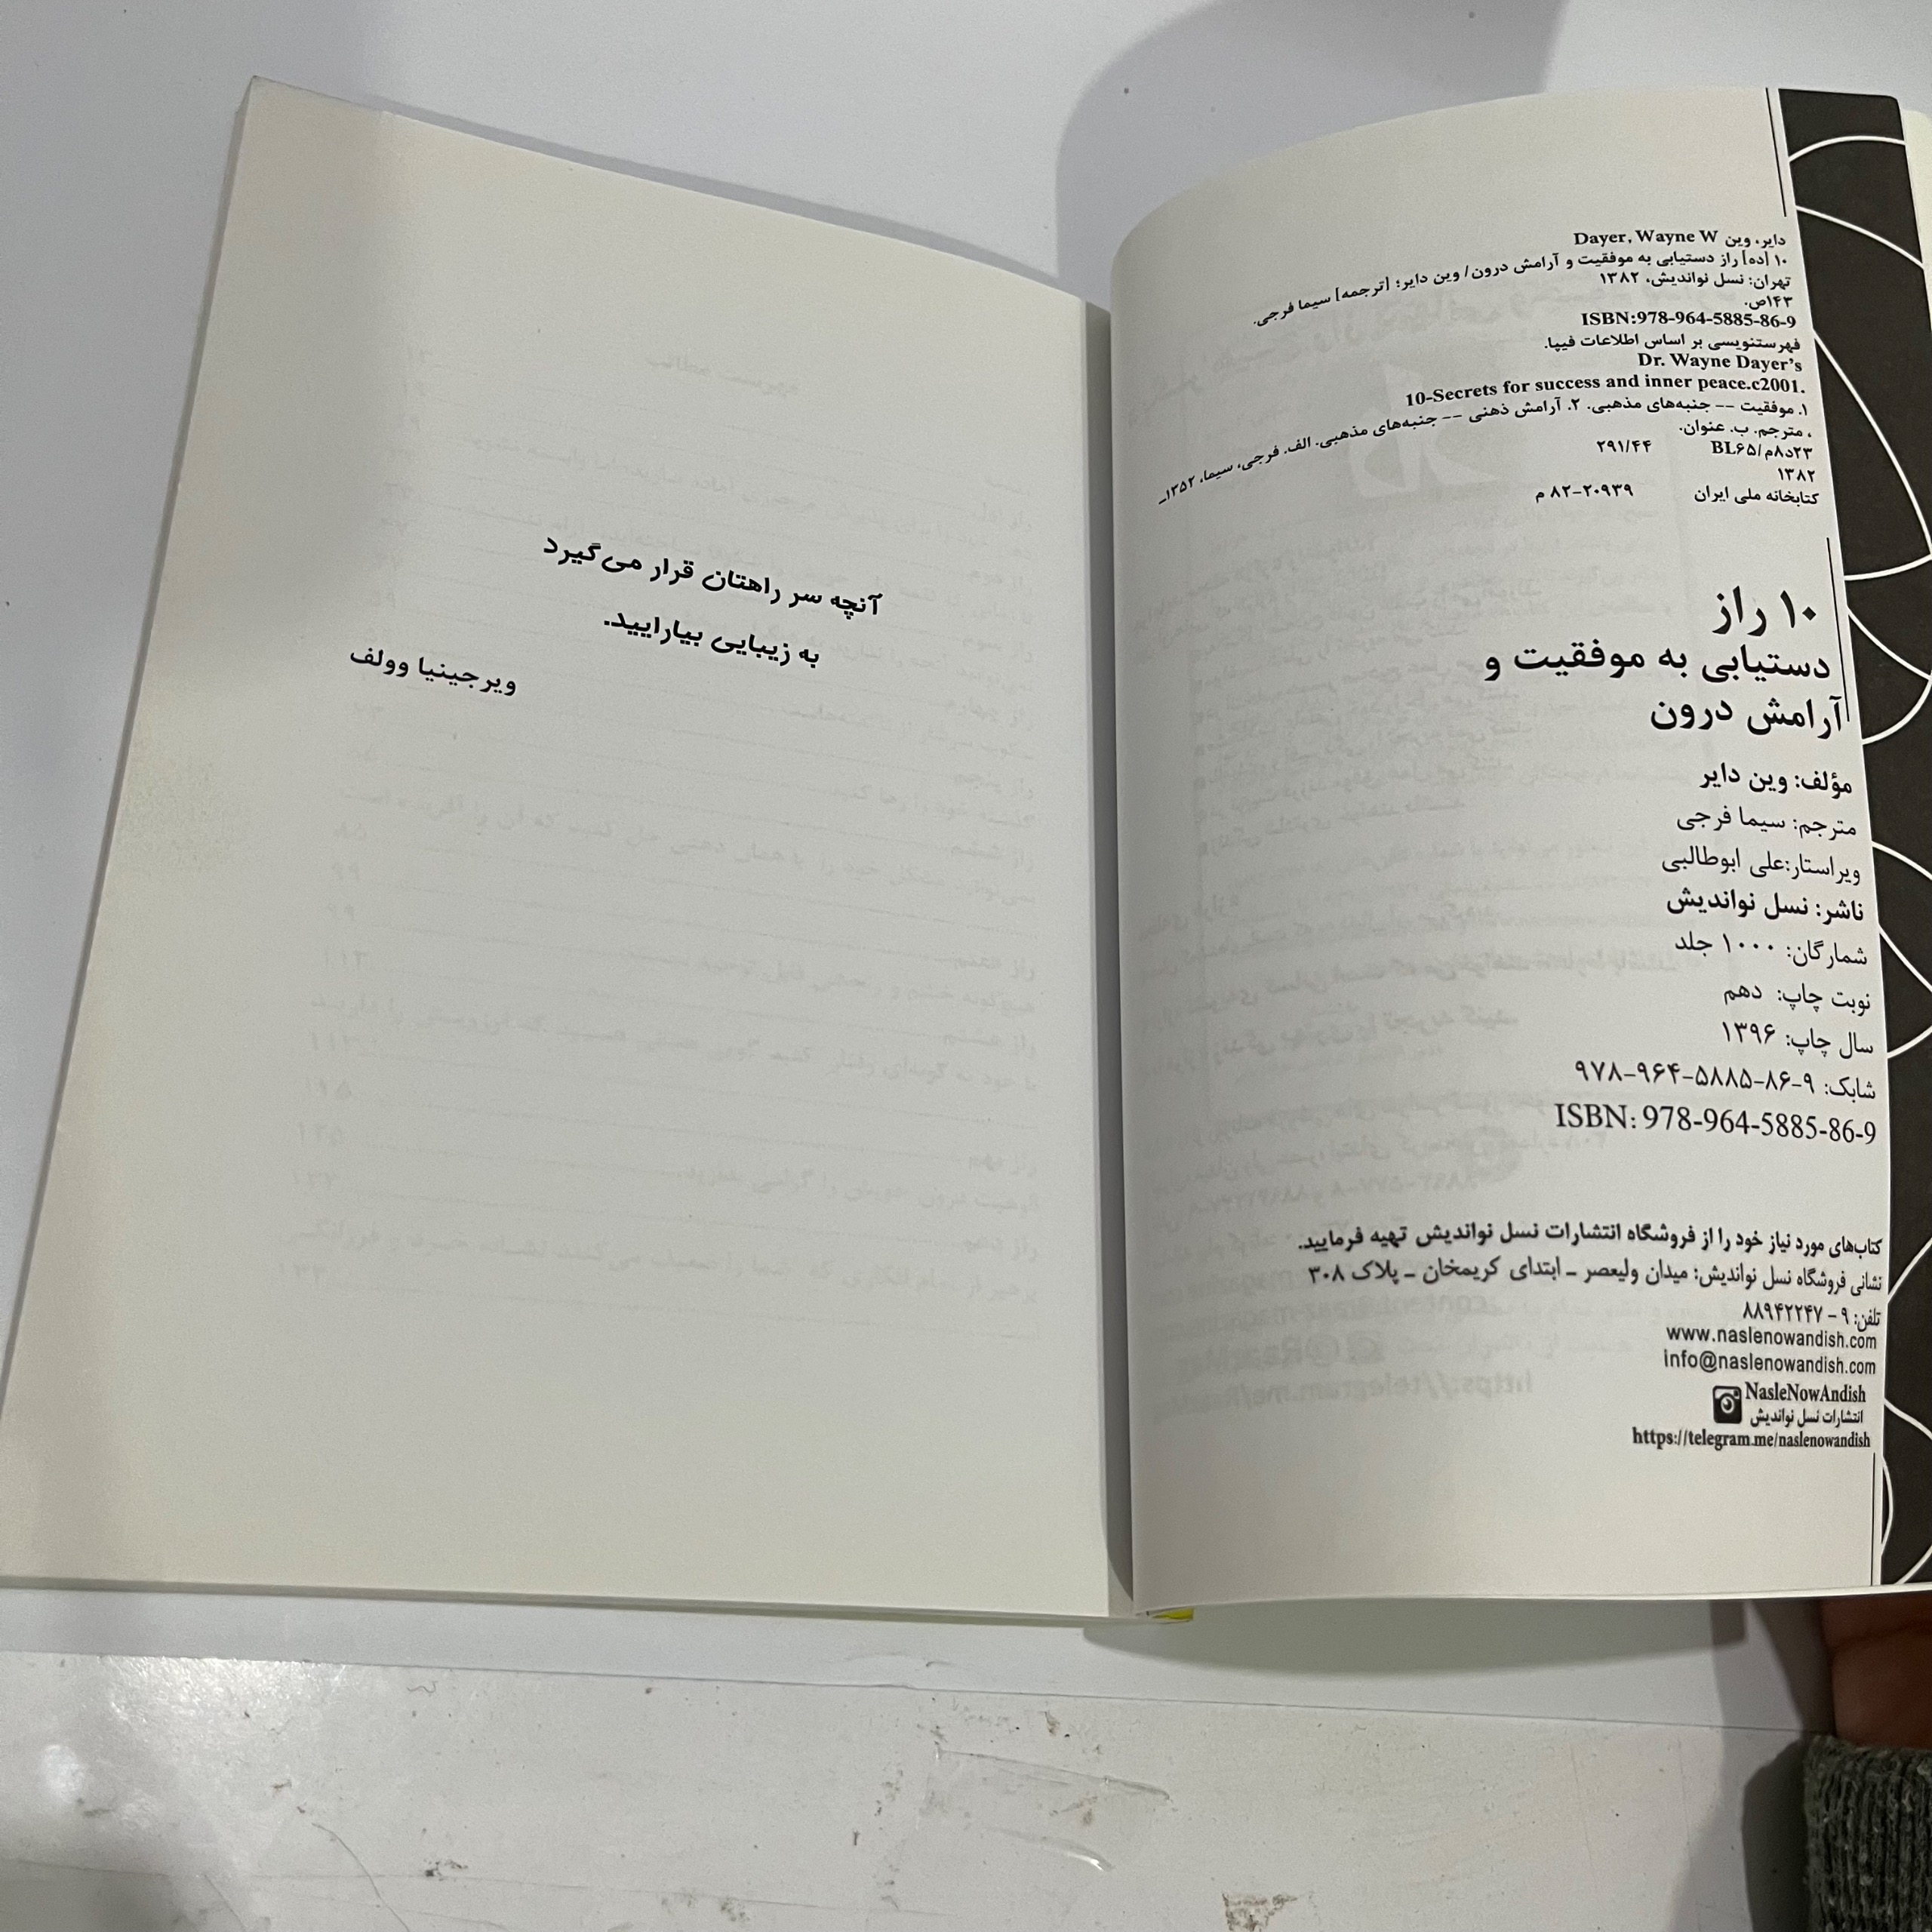 دایر، وین Dayer, Wayne W
۱۰ [ده] راز دستیابی به موفقیت و آرامش درون/ وین دایر؛ [ترجمه] سیما فرجی.
تهران: نسل نواندیش، ۱۳۸۲
۱۴۳ص.
ISBN:978-964-5885-86-9
فهرستنویسی بر اساس اطلاعات فیپا.
Dr. Wayne Dayer's
10-Secrets for success and inner peace.c2001.
۱. موفقیت -- جنبه‌های مذهبی. ۲. آرامش ذهنی -- جنبه‌های مذهبی. الف. فرجی، سیما، ۱۳۵۲ـ
، مترجم. ب. عنوان.
BL۶۵/م۸د۲۳ ۲۹۱/۴۴
۱۳۸۲
کتابخانه ملی ایران ۲۰۹۳۹-۸۲ م
۱۰ راز
دستیابی به موفقیت و
آرامش درون
مؤلف: وین دایر
مترجم: سیما فرجی
ویراستار:علی ابوطالبی
ناشر: نسل نواندیش
شمارگان: ۱۰۰۰ جلد
نوبت چاپ: دهم
سال چاپ: ۱۳۹۶
شابک: ۹-۸۶-۵۸۸۵-۹۶۴-۹۷۸
ISBN: 978-964-5885-86-9
کتاب‌های مورد نیاز خود را از فروشگاه انتشارات نسل نواندیش تهیه فرمایید.
نشانی فروشگاه نسل نواندیش: میدان ولیعصر ـ ابتدای کریمخان ـ پلاک ۳۰۸
تلفن: ۹ - ۸۸۹۴۲۲۴۷
www.naslenowandish.com
info@naslenowandish.com
NasleNowAndish
انتشارات نسل نواندیش
https://telegram.me/naslenowandish
آنچه سر راهتان قرار می‌گیرد
به زیبایی بیارایید.
ویرجینیا وولف